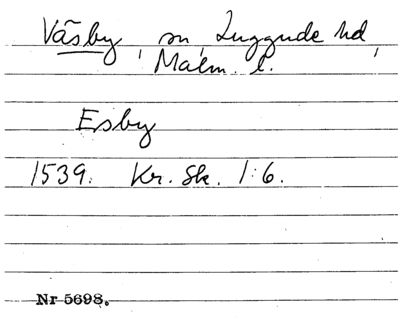 Väsby, sn, Luggude hd,
Malm. l.
Esby
1539. Kr. Sk. 1:6.
Nr 5698.